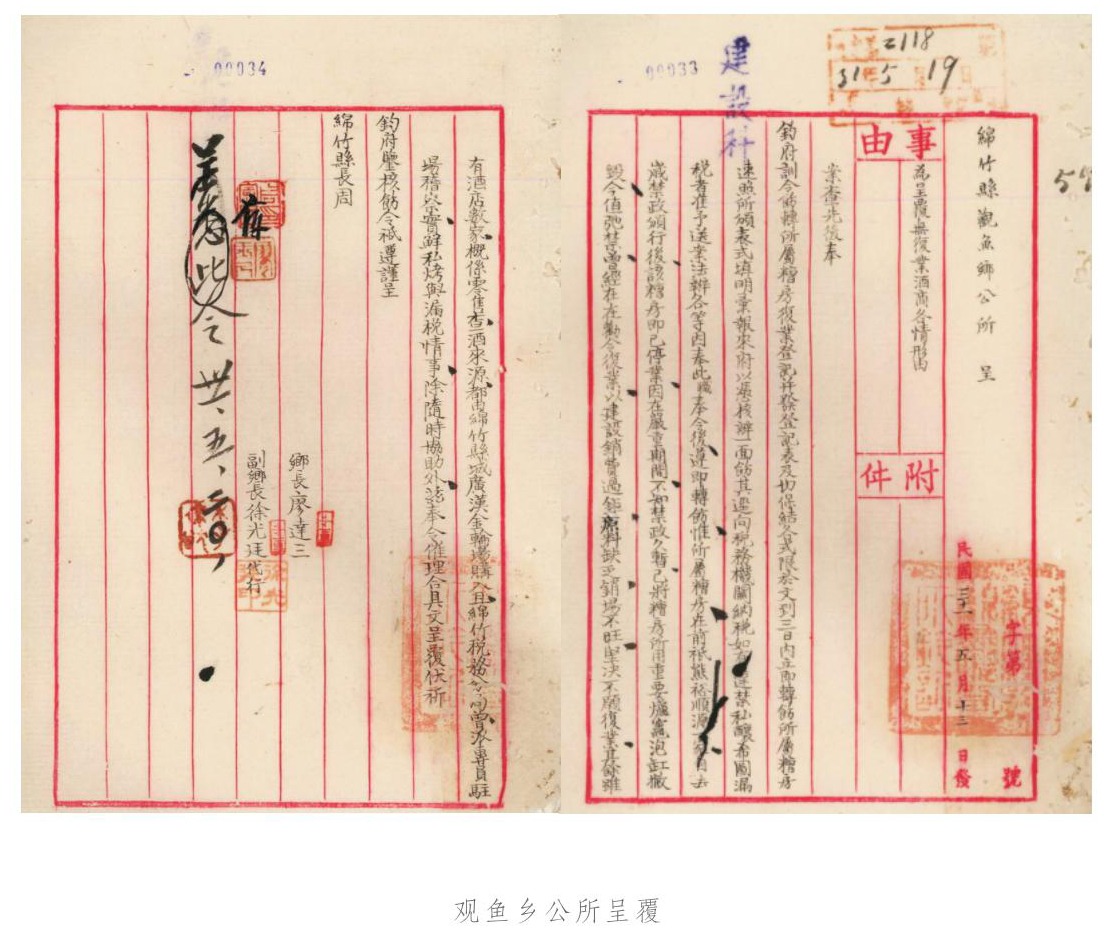 2118
31 5 19
綿竹縣觀魚鄉公所 呈
事由
為呈覆無復業酒商各情形由
附件
民國三十一年五月十三日發
字第 號
建設科
00033
案查先後奉
鈞府訓令飭轉所屬糟房復業登記并發登記表及切保結各式限於文到三日內立即轉飭所屬糟房
速照所頒表式填明彙報來府以憑核辦一面飭其逕向税務機關納税如有違禁私釀希圖漏
税者准予送案法辦各等因奉此職奉令後遵即轉飭惟所屬糟房在前祇熊裕順源一家自去
歲禁政頒行後該糟房即已停業因在嚴重期間不知禁政久暫已將糟房所用重要爐竈泡缸撤
毀今值弛禁曾經在在勸令復業以建設銷費過鉅原料缺乏銷場不旺堅決不願復業其餘雖
00034
有酒店數家概係零售查酒來源都由綿竹縣城廣漢金輪場購入且綿竹税務分局曾派專員駐
場稽察實鮮私烤與漏税情事除隨時協助外茲奉令催理合具文呈覆伏祈
鈞府鑒核飭令祗遵謹呈
綿竹縣長周
鄉長廖達三
副鄉長徐光廷代行
此令 卅、五、二〇、
观鱼乡公所呈覆